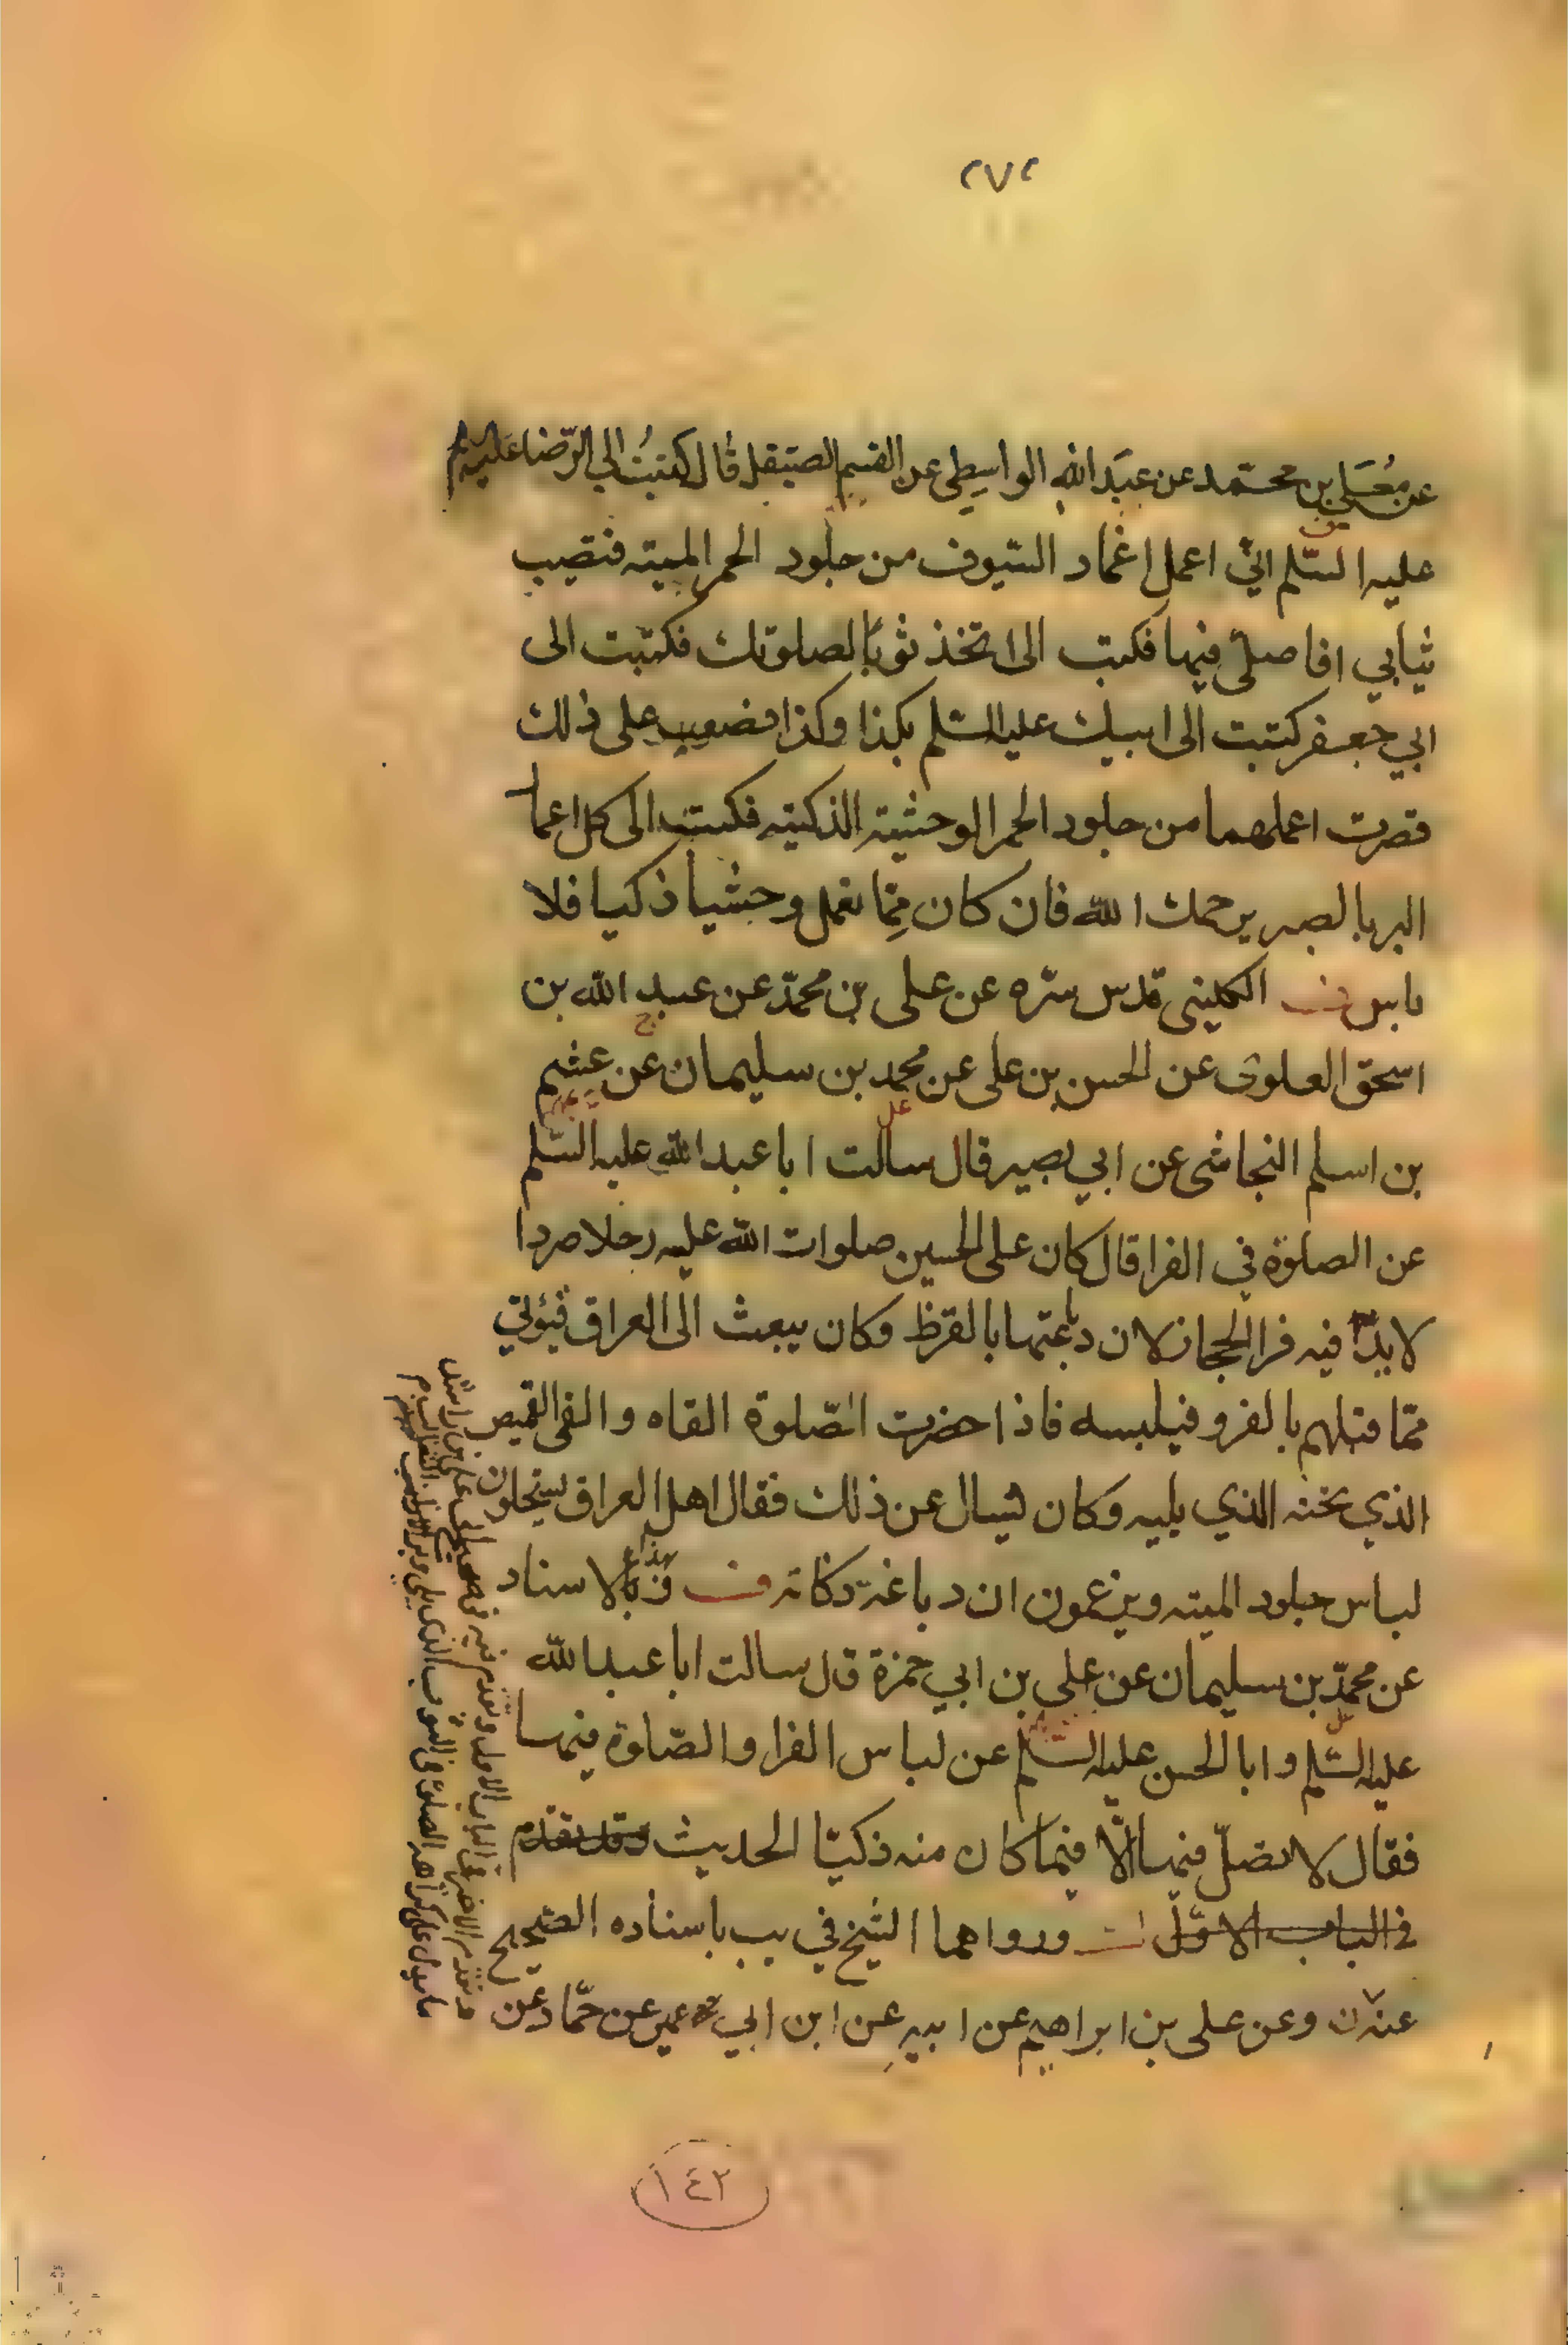 ٢٧٢
عن مُعَلى بن محمّد عن عبَد الله الواسِطي عن القسم الصيقل قال كتبتُ الى الرّضا عليه
عليه السّلم اني اعمل اغماد السّيوف من جلود الحمر الميته فتصيب
ثيابي افاصلى فيها فكتب الى اتخذ ثوبًا لصلوتك فكتبت الى
ابي جعفر كتبت الى ابيك عليه السّلم بكذا وكذا فصعب على ذلك
فصرت اعملهما من جلود الحمر الوحشية الذكيته فكتب الى كل اعما
البر بالصبر يرحمك الله فان كان ممّا نعمل وحشيا ذكيا فلا
باس الكليني قدس سّره عن على بن محمّد عن عبد الله بن
اسحق العلوى عن الحسن بن على عن محمد بن سليمان عن عيثم
بن اسلم النجاشى عن ابي بصير قال سالت ابا عبد الله عليه السّلم
عن الصلوة في الفرا قال كان على الحسين صلوات الله عليه رجلا صردا
لا يدّ فيه فرا الحجاز لان دباغتها بالقرظ وكان يبعث الى العراق فيؤتي
ممّا قبلهم بالفرو فيلبسه فاذا حضرت الصّلوة القاه والقى القميص
الذي تحته الذي يليه وكان يسال عن ذلك فقال اهل العراق يستحلون
لباس جلود الميته ويزعمون ان دباغه ذكاته بهذا الاسناد
عن محمّد بن سليمان عن على بن ابي حمزة قال سالت ابا عبد الله
عليه السّلم و ابا الحسن عليه السّلم عن لباس الفرا والصّلوة فيها
فقال لا تصلّ فيها الّا فيما كان منه ذكيّا الحديث وقد تقدم
في الباب الاوّل ورواهما الشيخ في يب باسناده الصحيح
عنه وعن على بن ابراهيم عن ابيه عن ابن ابي عمير عن حمّاد عن
١٤٢